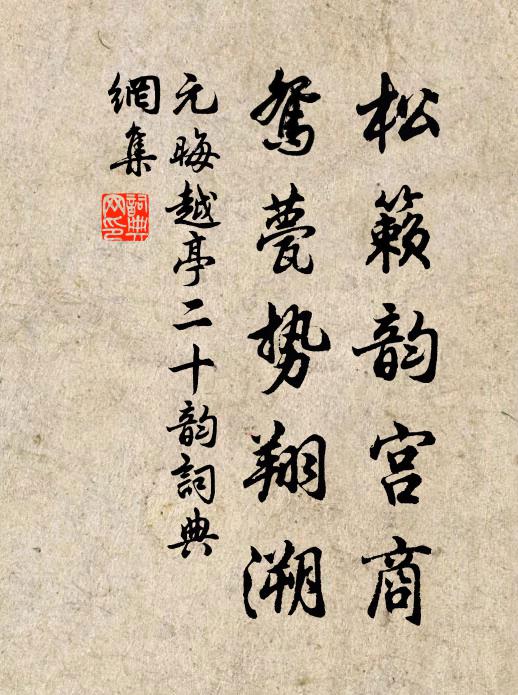 松籁韵宫商
鴛甍势翔溯
元晦越亭二十韵詞典
網集
詞典
网印